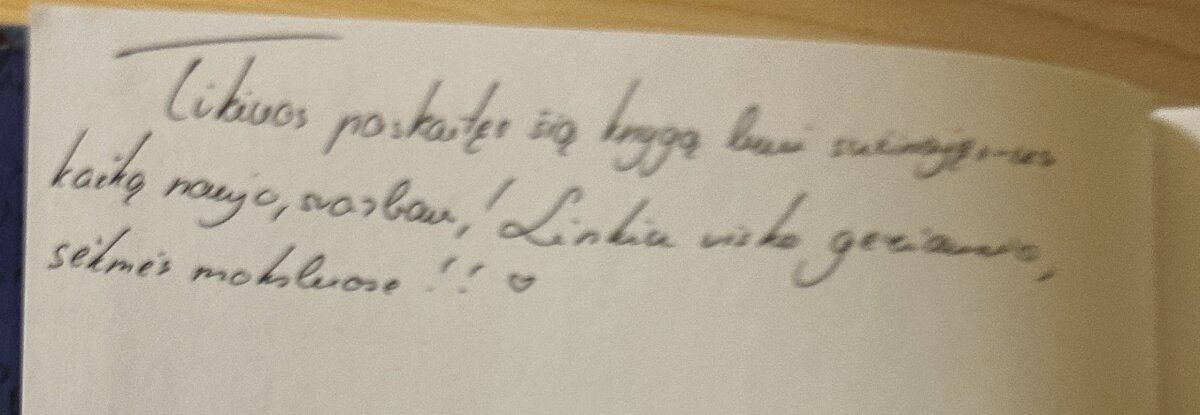 Tikiuos paskaitęs šią knygą busi sužinojęs-us
kažką naujo, svarbaus! Linkiu visko geriausio,
sėkmės moksluose!! ♡